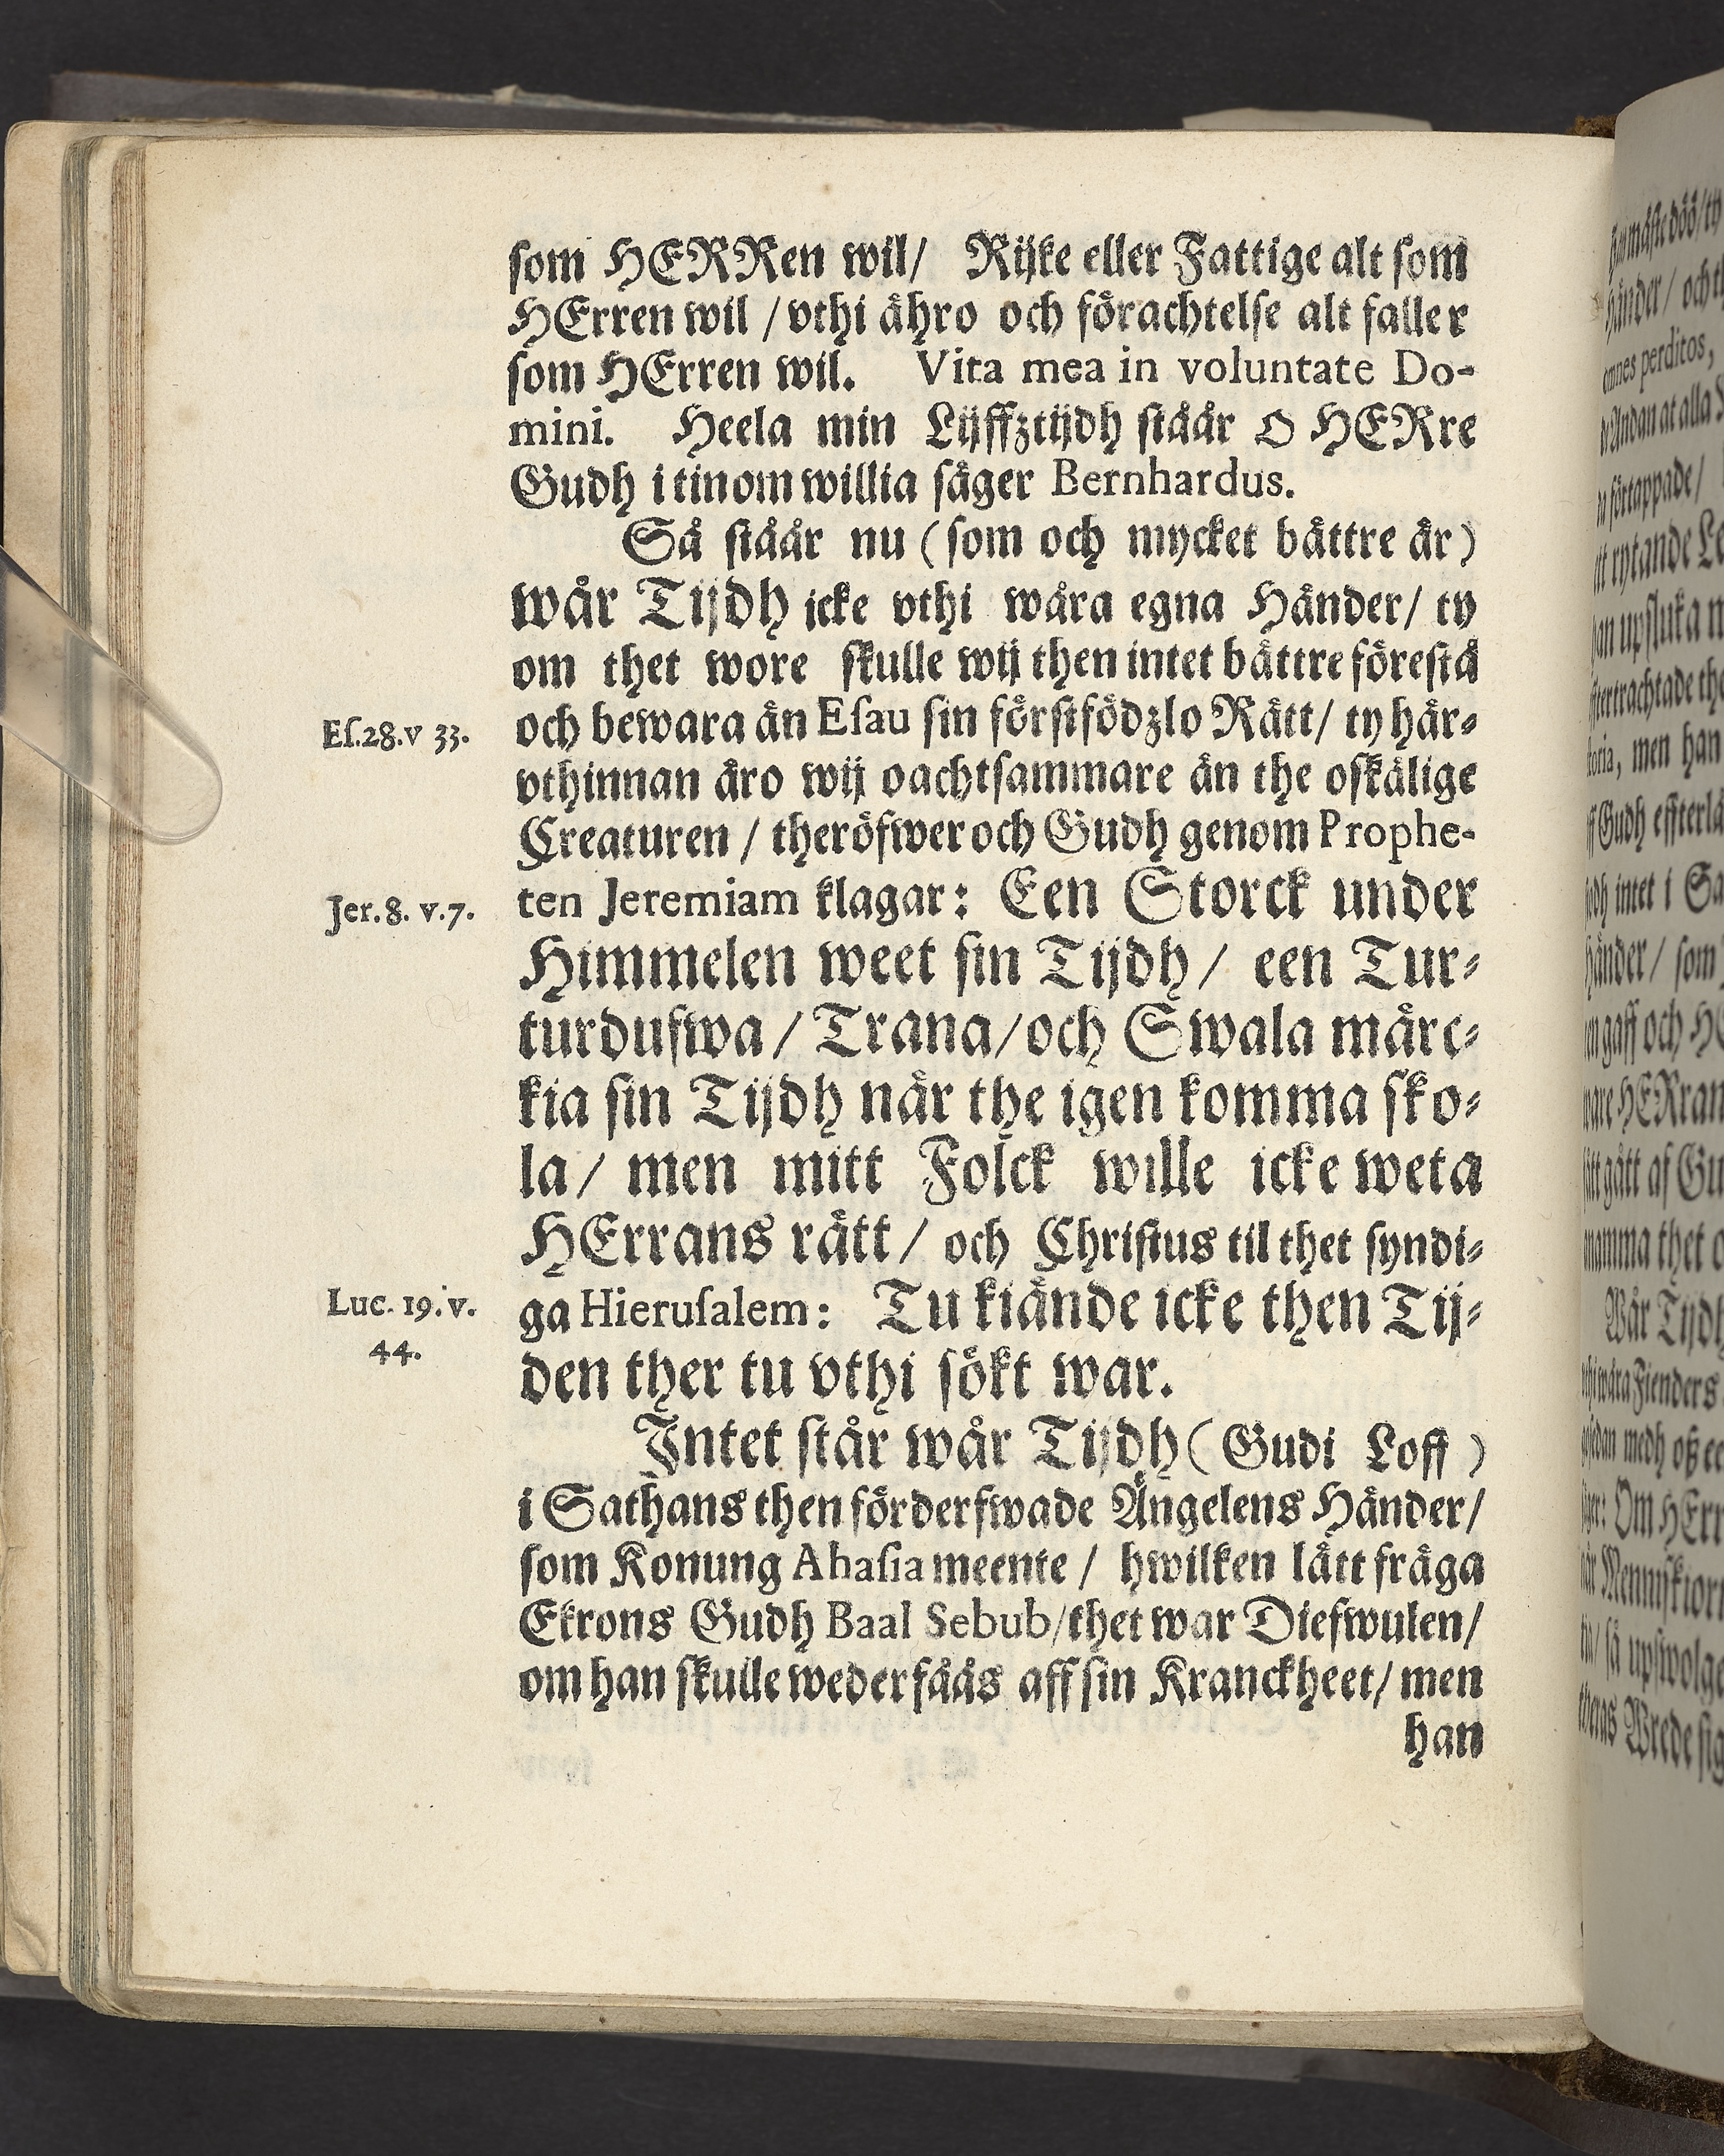 som HERRen wil/ Rijke eller Fattige alt som
HErren wil / vthi ähro och förachtelse alt faller
som HErren wil. Vita mea in voluntate Do-
mini. Heela min Lijffztijdh ståår O HERre
Gudh i tinom willia säger Bernhardus.
Så ståår nu (som och mycket bättre är)
wår Tijdh icke vthi wåra egna Händer/ ty
om thet wore skulle wij then intet bättre förestå
Es.28.v 33.
och bewara än Esau sin förstfödzlo Rätt/ ty här-
vthinnan äro wij oachtsammare än the oskälige
Creaturen / theröfwer och Gudh genom Prophe-
Jer. 8. v.7.
ten Jeremiam klagar: Een Storck under
Himmelen weet sin Tijdh/ een Tur-
turdufwa/ Trana/och Swala märc-
kia sin Tijdh när the igen komma sko-
la/ men mitt Folck wille icke weta
HErrans rätt/ och Christus til thet syndi-
Luc. 19. v.
44.
ga Hierusalem: Tu kiände icke then Tij-
den ther tu vthi sökt war.
Intet står wår Tijdh ( Gudi Loff )
i Sathans then förderfwade Ängelens Händer/
som Konung Ahasia meente / hwilken lätt fråga
Ekrons Gudh Baal Sebub/thet war Diefwulen/
om han skulle wederfåås aff sin Kranckheet/ men
han